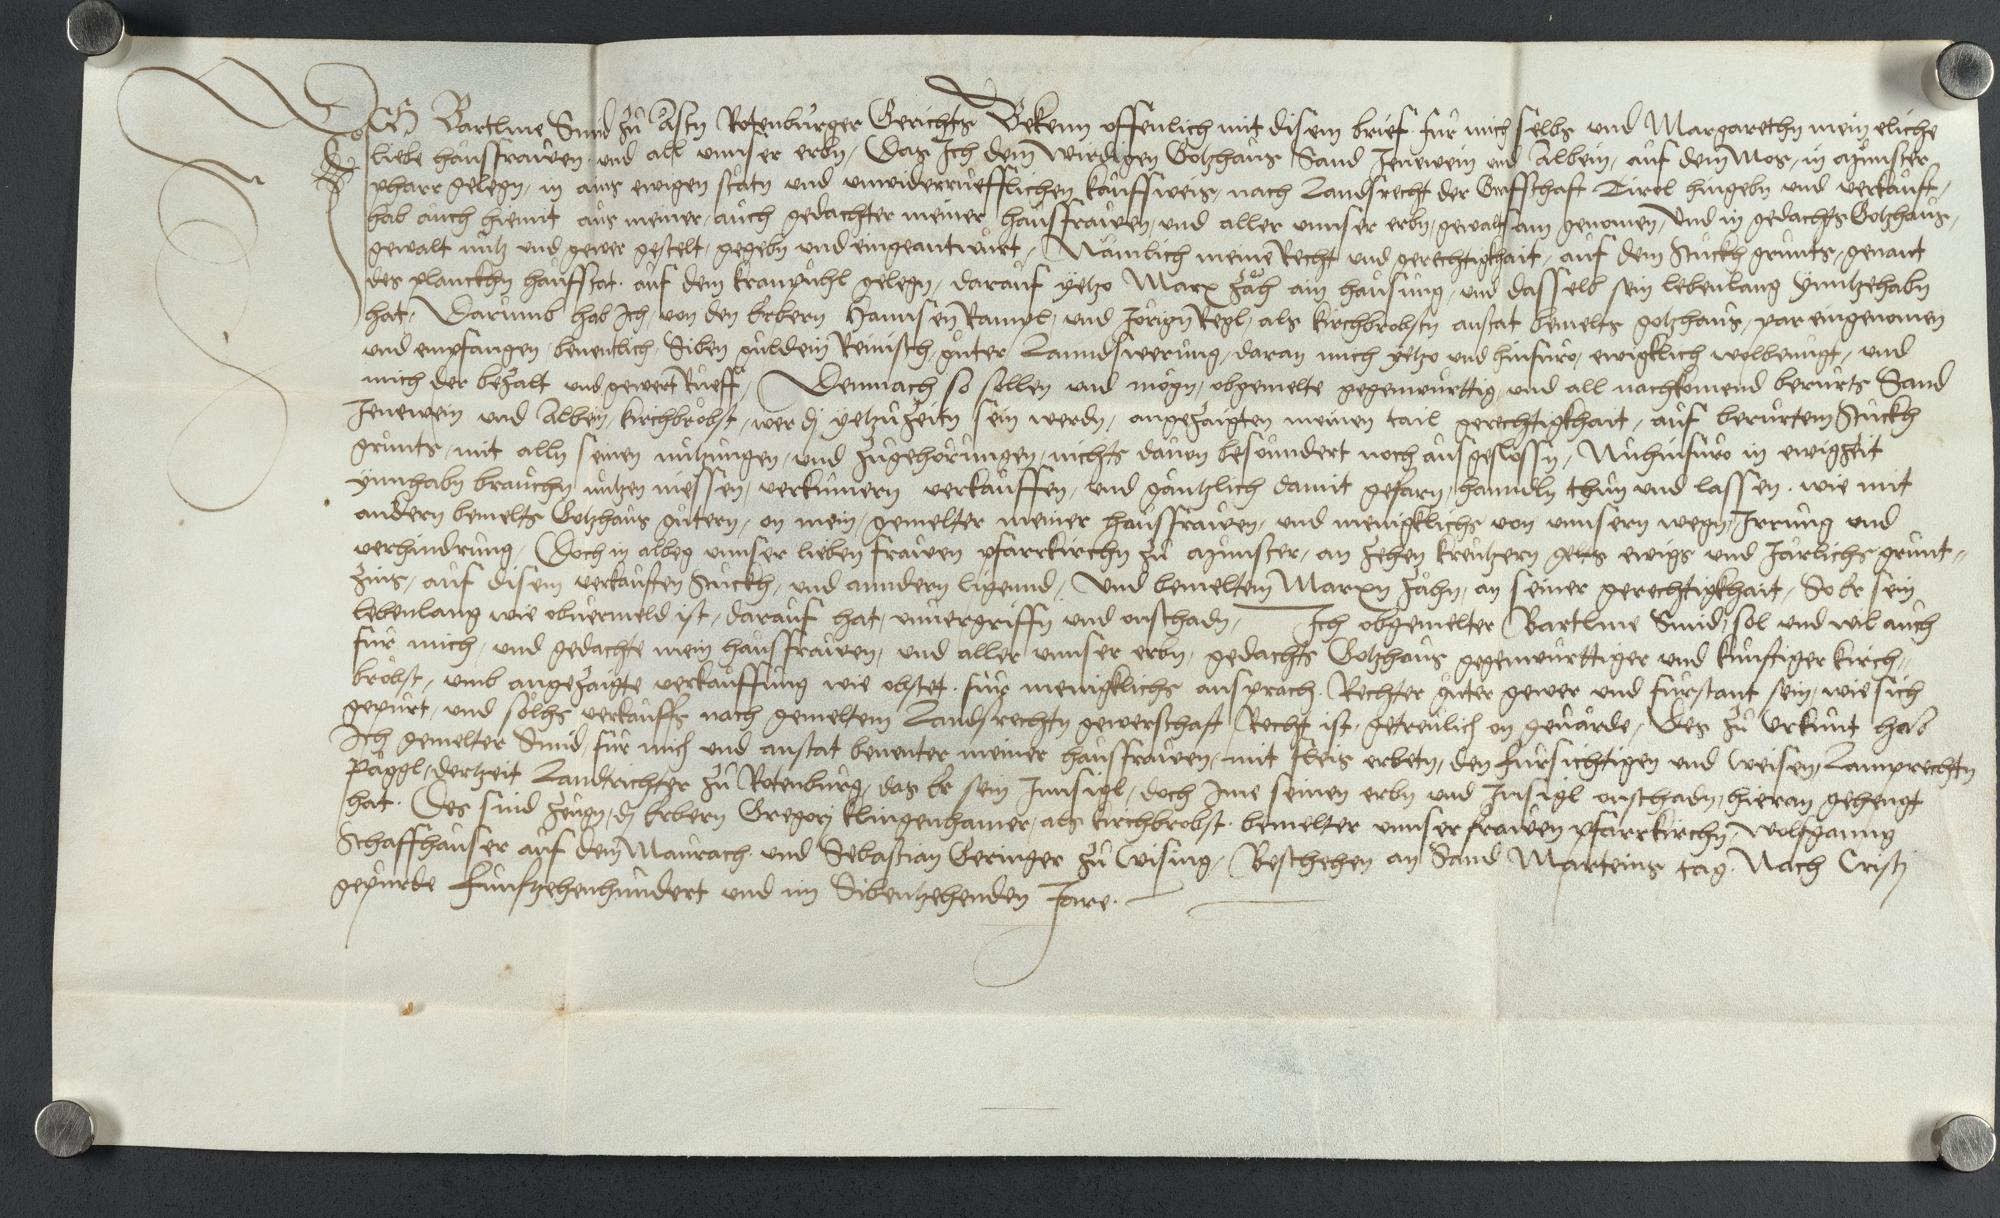 Ich Bartlme Smid zu Astn Rotenburger Gerichts Bekenn offenlich mit disem brief fur mich selbs und Margarethn mein eliche
liebe hausfrawen und all unnser erbn, Das Ich dem wirdigen Gotzhaus Sand Jenewein und Albein, auf dem Mos, in Munster
pharr gelegn, in ains ewigen statn und unwiderruefflichen kauffweis, nach Landsrecht der Grafschaft Tirol hingebn und verkauft,
hab auch hiemit aus meiner, auch gedachter meiner hausfrawen, und aller unnser erbn, gewaltsam genomen, Und in gedachts Gotzhaus,
gewalt nutz und gewer gestelt, gegebn und eingeantwurt, Nämlich meine Recht und gerechtigkhait, auf dem Stuckh grunts, genant
des planckhn haufstat auf dem kranpuhl gelegn, darauf yetzo Marx Zäch ain hausung, und dasselb sein lebenlang ynntzehabn
hat, Darumb hab Ich, von den Erbern Hannsen Rampl, und Jorign Regl, als kirchbrobstn anstat bemelts gotzhaus, par eingenomen
und empfangen, benentlich, Siben guldein Reinisch, guter Lanndswerung, daran mich yetzo und hinfuro, ewigklich wolbenugt, und
mich der bezalt und gewert Rueff, Demnach so sollen und mogn, obgemelte gegenwurttig, und all nachkomend berurts Sand
Jenewein und Albein, kirchbröbst, wer dj yetzuzeitn sein werdn, angezaigten meinen tail gerechtigkhait, auf berurtem Stuckh
grunts, mit alln seinen nutzungen, und zugehorungen, nichts dauon besonndert noch ausgeslossn, Nuhinfuro in ewigzeit
ynnhabn brauchn nutzen niessen, verkumern verkauffen, und gantzlich damit gefarn, hanndln thun und lassen, wie mit
andern bemelts Gotzhaus gutern, on mein, gemelter meiner hausfrawen, und menigklichs von unnsern wegn, Irrung und
verhindrung, Doch in albeg unnser lieben frawen pfarrkirchn zu Munster, an zehen kreutzern gelts ewigs und Järlichs grunt-
zins, auf disem verkauften Stuckh, und anndern ligennd, Und bemeltem Marxn Zächn, an seiner gerechtigkhait, So Er sein
lebenlang wie obuermeld ist, darauf hat, unuergriffn und onschadn, Ich obgemelter Bartlme Smid, sol und wil auch
fur mich, und gedachte mein hausfrawen, und aller unnser erbn, gedachts Gotzhaus gegenwurttiger und kunftiger kirch-
bröbst, umb angezaigte verkauffung wie obstet, fur menigklichs ansprach, Rechter guter gewer und furstant sein, wie sich
gepurt, und solhs verkauffs nach gemeltem Landsrechtn gewerschaft Recht ist, getreulich on geuärde, Des zu Urkunt hab
Ich gemelter Smid, fur mich und anstat benenter meiner hausfrawen, mit fleis erbetn, den fursichtigen und weisen, Lamprechtn
Päggl, dertzeit Landrichter zu Rotenburg, das Er sein Innsigl, doch Ime seinen erbn und Insigl onschadn, hieran gehengt
hat. Des sind zeugn, dj Erbern Gregorj Klingenhamer, als kirchbrobst bemelter unnser frawen pfarrkirchn, Wolfganng
Schaffhauser auf dem Maurach und Sebastian Geringer zu Wising, Beschehen an Sand Marteins tag, Nach Cristj
gepurde Funftzehenhundert und im Sibentzehenden Jare.